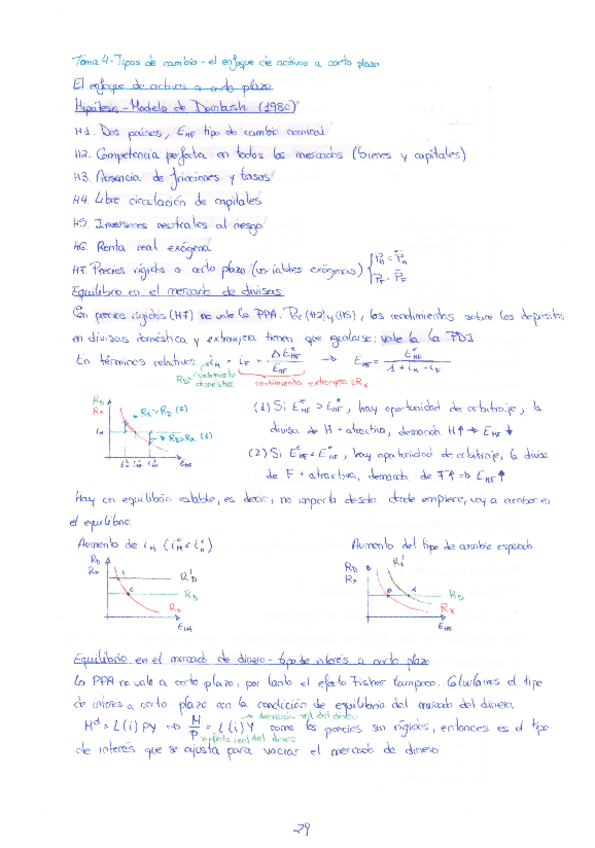 Tema 4 - Tipos de cambio - el enfoque de activos a corto plazo
El enfoque de activos a corto plazo
Hipótesis - Modelo de Dornbush (1980)
H1. Dos países, E_HF tipo de cambio nominal
H2. Competencia perfecta en todos los mercados (bienes y capitales)
H3. Ausencia de fricciones y tasas
H4. Libre circulación de capitales
H5. Inversores neutrales al riesgo
H6. Renta real exógena
H7. Precios rígidos a corto plazo (variables exógenas) { P_H = P̄_H
P_F = P̄_F
Equilibrio en el mercado de divisas
Con precios rígidos (H7) no vale la PPA. Por (H2) y (H5), los rendimientos sobre los depósitos
en divisas doméstica y extranjera tienen que igualarse; vale la la PDI
En términos relativos: i_H = i_F + ΔE^e_HF / E_HF → E_HF = E^e_HF / (1 + i_H - i_F)
R_D = rendimiento doméstico
rendimiento extranjero = R_X
R_D
R_X
R_X > R_D (2)
R_D > R_X (1)
i_H
E_HF
(1) Si E_HF > E_HF, hay oportunidad de arbitraje, la
divisa de H + atractiva, demanda H↑ → E_HF ↓
(2) Si E_HF < E_HF, hay oportunidad de arbitraje, la divisa
de F + atractiva, demanda de F↑ → E_HF ↑
Hay un equilibrio estable, es decir, no importa desde donde empiece, voy a acabar en
el equilibrio.
Aumento de i_H
Aumento del tipo de cambio esperado
R_D
R_X
R'_D
R_D
R_X
E_HF
R_D
R_X
R'_X
R_D
R_X
E_HF
Equilibrio en el mercado de dinero - tipo de interés a corto plazo
La PPA no vale a corto plazo, por tanto el efecto Fisher tampoco. Calculamos el tipo
de interés a corto plazo con la condición de equilibrio del mercado del dinero.
demanda real del dinero
M^d = L(i) PY → M/P = L(i) Y como los precios son rígidos, entonces es el tipo
oferta real del dinero
de interés que se ajusta para vaciar el mercado de dinero
29